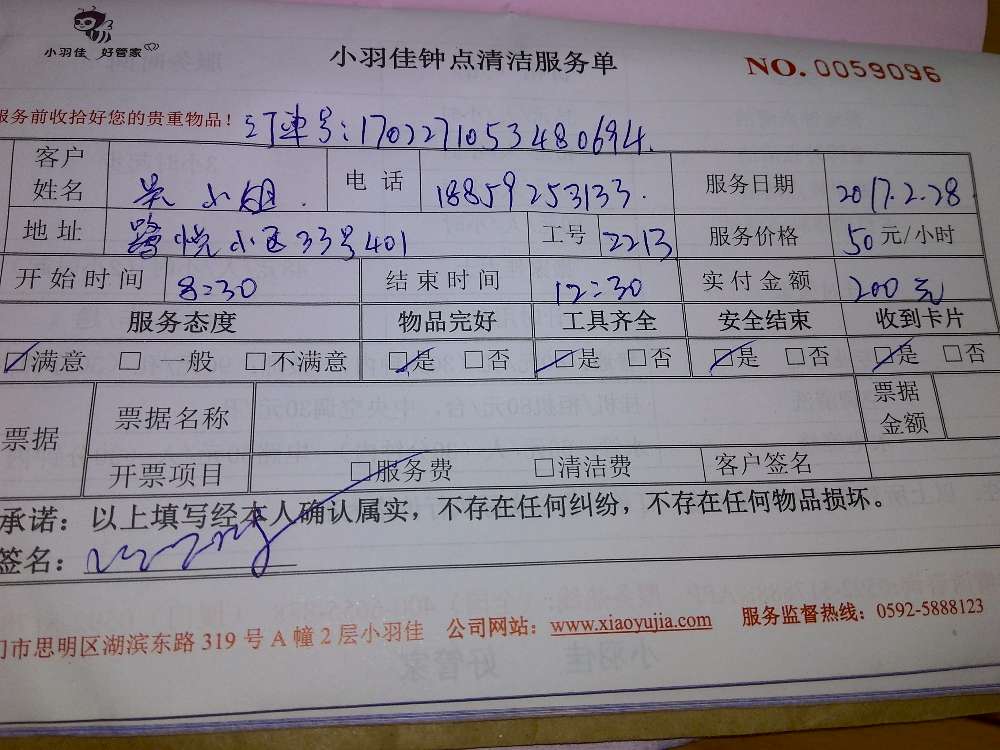 小羽佳 好管家
小羽佳钟点清洁服务单
NO. 0059096
服务前收拾好您的贵重物品！ 订单号：1702271053480694.
客户姓名 吴小姐. 电话 18859253133. 服务日期 2017.2.28
地址 鹭悦小区33号401 工号 2213 服务价格 50元/小时
开始时间 8:30 结束时间 12:30 实付金额 200元
服务态度 物品完好 工具齐全 安全结束 收到卡片
☑满意 □一般 □不满意 ☑是 □否 ☑是 □否 ☑是 □否 ☑是 □否
票据 票据名称 票据金额
开票项目 □服务费 □清洁费 客户签名
承诺：以上填写经本人确认属实，不存在任何纠纷，不存在任何物品损坏。
签名：
门市思明区湖滨东路319号A幢2层小羽佳 公司网站：www.xiaoyujia.com 服务监督热线：0592-5888123